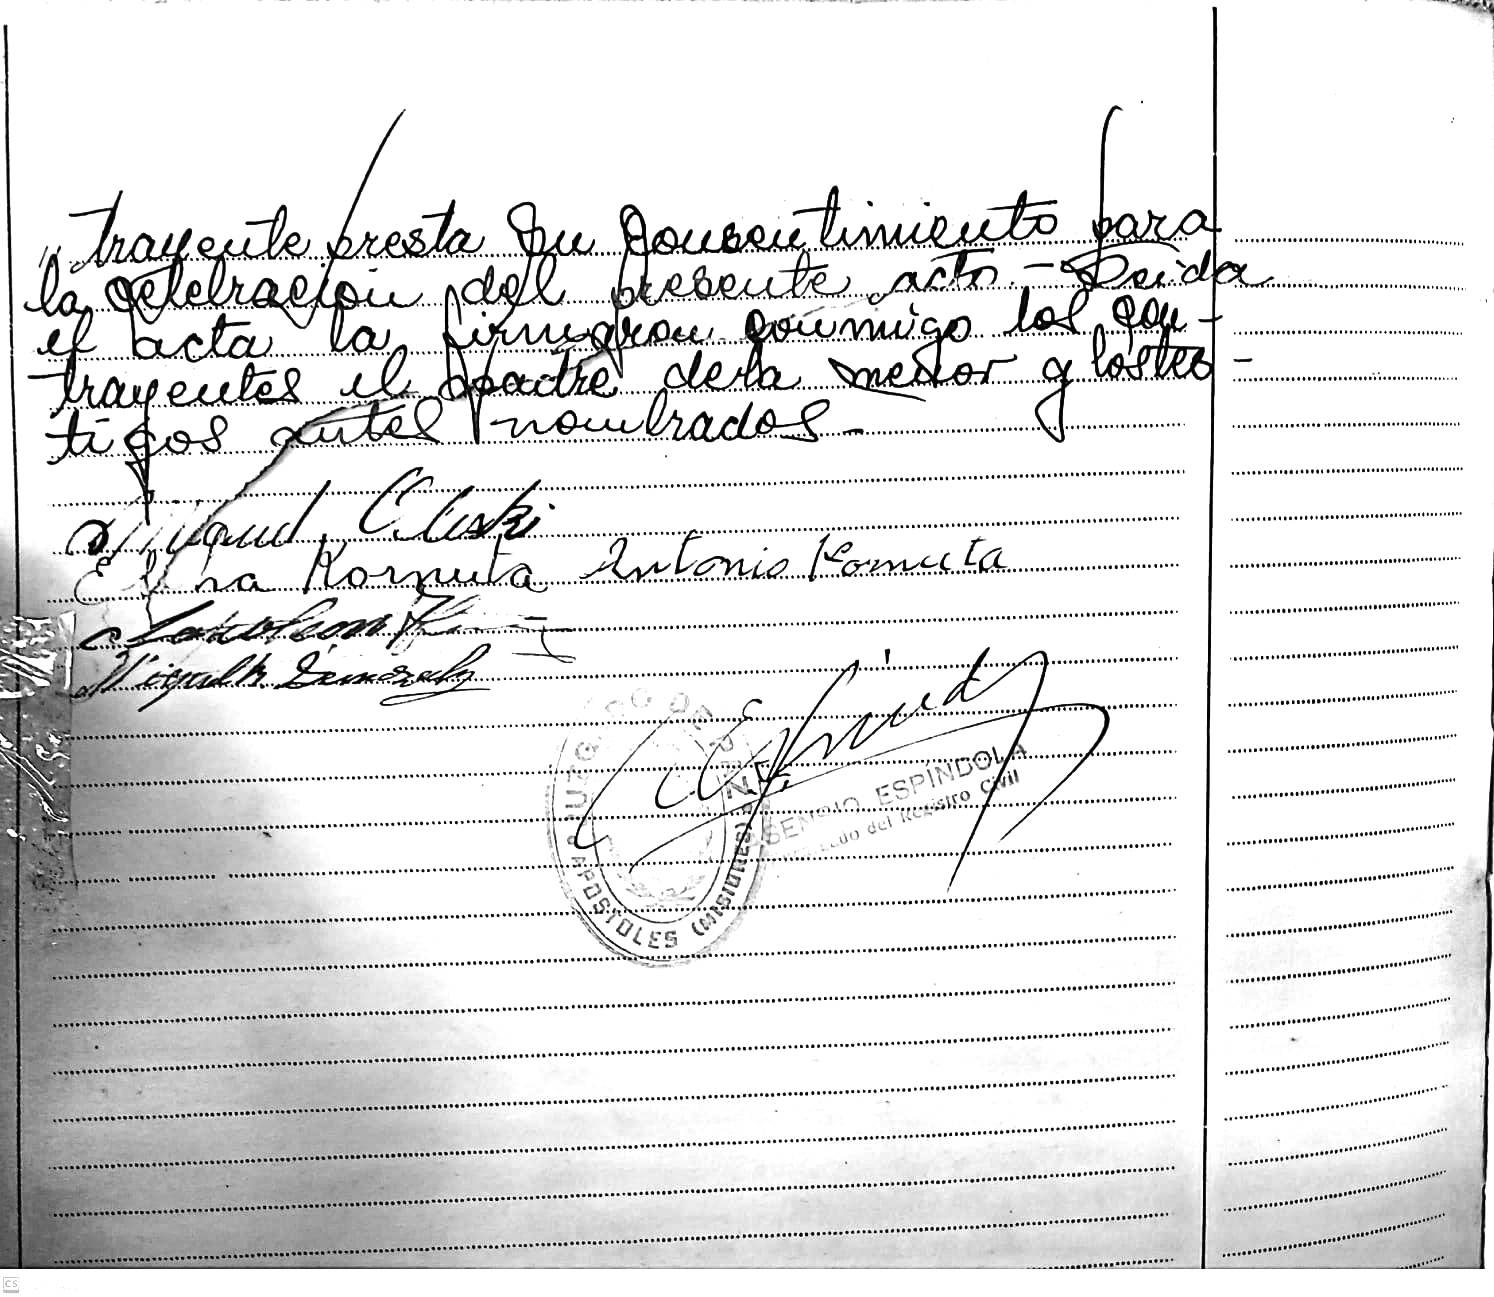 " trayente presta su consentimiento para
la celebración del presente acto. - Leida
el acta la firmaron conmigo los con -
trayentes el padre de la menor y los tes -
tigos antes nombrados. -
Miguel
Elena Kornuta Antonio Kornuta
JUZGADO DE PAZ
APOSTOLES (MISIONES)
ESPÍNDOLA
del Registro Civil
CS